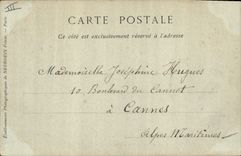 III
CARTE POSTALE
Ce côté est exclusivement réservé à l'adresse
Mademoiselle Joséphine Hugues
10 Boulevard du Cannet
à
Cannes
Alpes Maritimes
Etablissements Photographiques de NEURDEIN Frères. — Paris